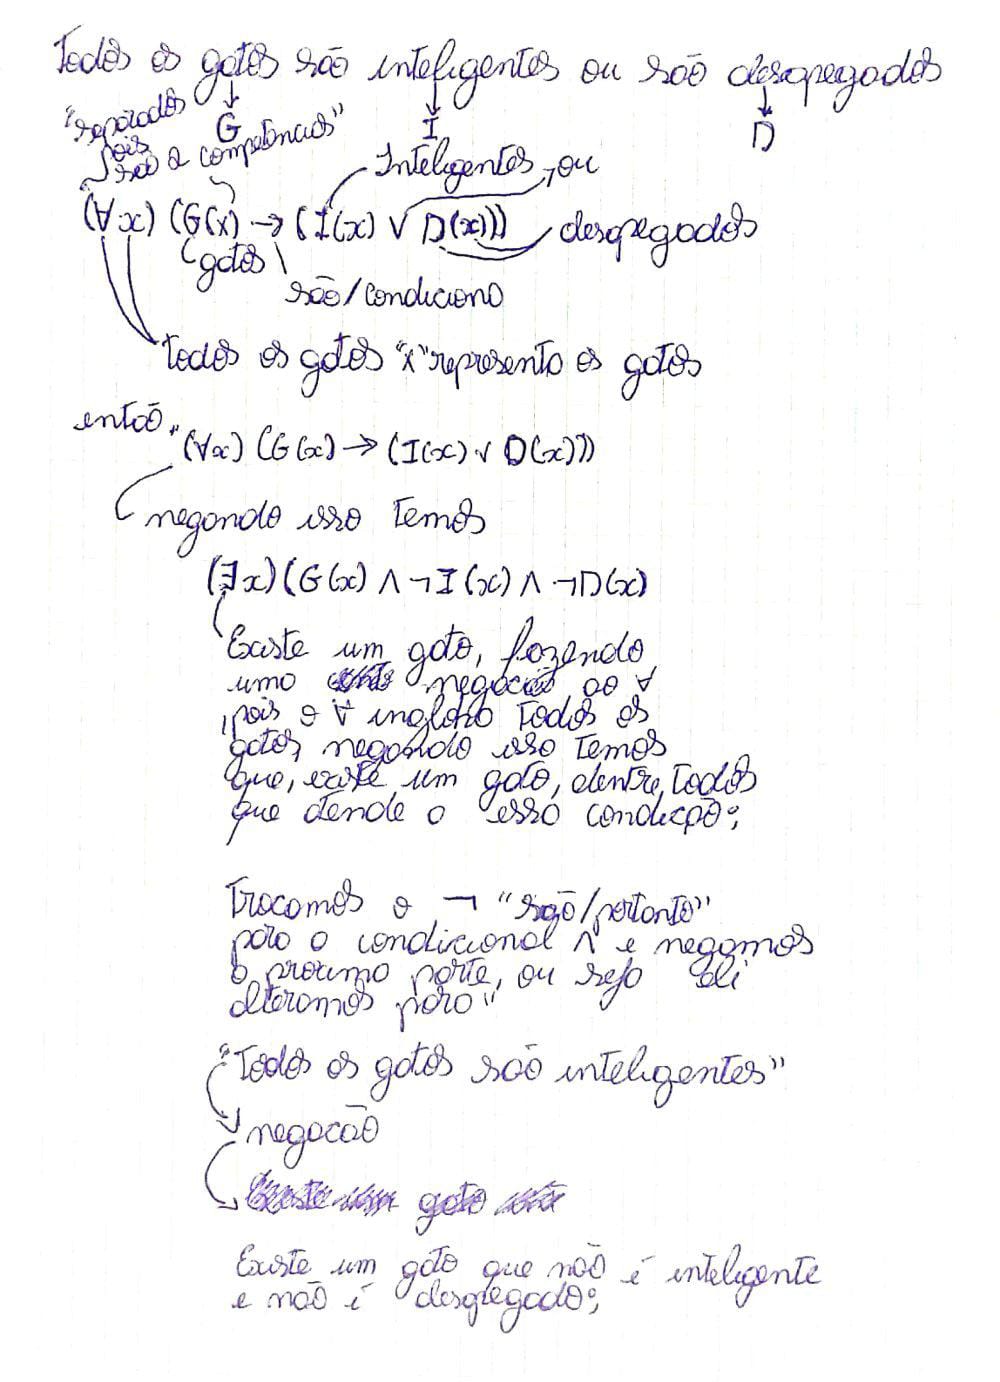 Todos os gatos são inteligentes ou são desapegados
G I D
"separados
pois
são 2 competências"
Inteligentes, ou
(∀x) (G(x) → (I(x) ∨ D(x))) desapegados
gatos
são/condiciona
todos os gatos "x" representa os gatos
então,
(∀x) (G(x) → (I(x) ∨ D(x)))
negando isso temos
(∃x) (G(x) ∧ ¬I(x) ∧ ¬D(x)
Existe um gato, fazendo
uma negação ao ∀
, pois o ∀ engloba todos os
gatos, negando isso temos
que, existe um gato, dentre, todos
que atende a essa condição;
Trocamos o ¬ "são/portanto"
para o condicional ∧ e negamos
a próxima parte, ou seja ali
alteramos para"
"Todos os gatos são inteligentes"
negacão
gato
Existe um gato que não é inteligente
e não é desapegado;